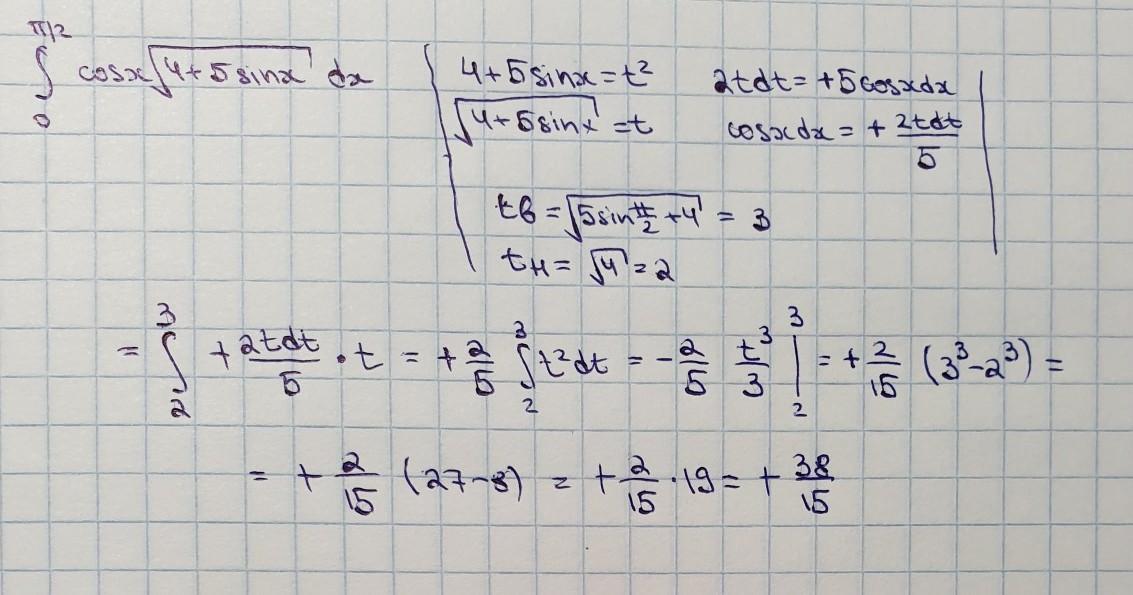 ∫₀^{π/2} cosx√(4+5sinx) dx | 4+5sinx=t² 2tdt=+5cosxdx |
√(4+5sinx)=t cosxdx=+2tdt/5
tв=√(5sin π/2 +4)=3
tн=√4=2
=∫₂³ +2tdt/5·t=+2/5 ∫₂³ t²dt=-2/5 t³/3 |₂³=+2/15 (3³-2³)=
=+2/15 (27-8)=+2/15·19=+38/15